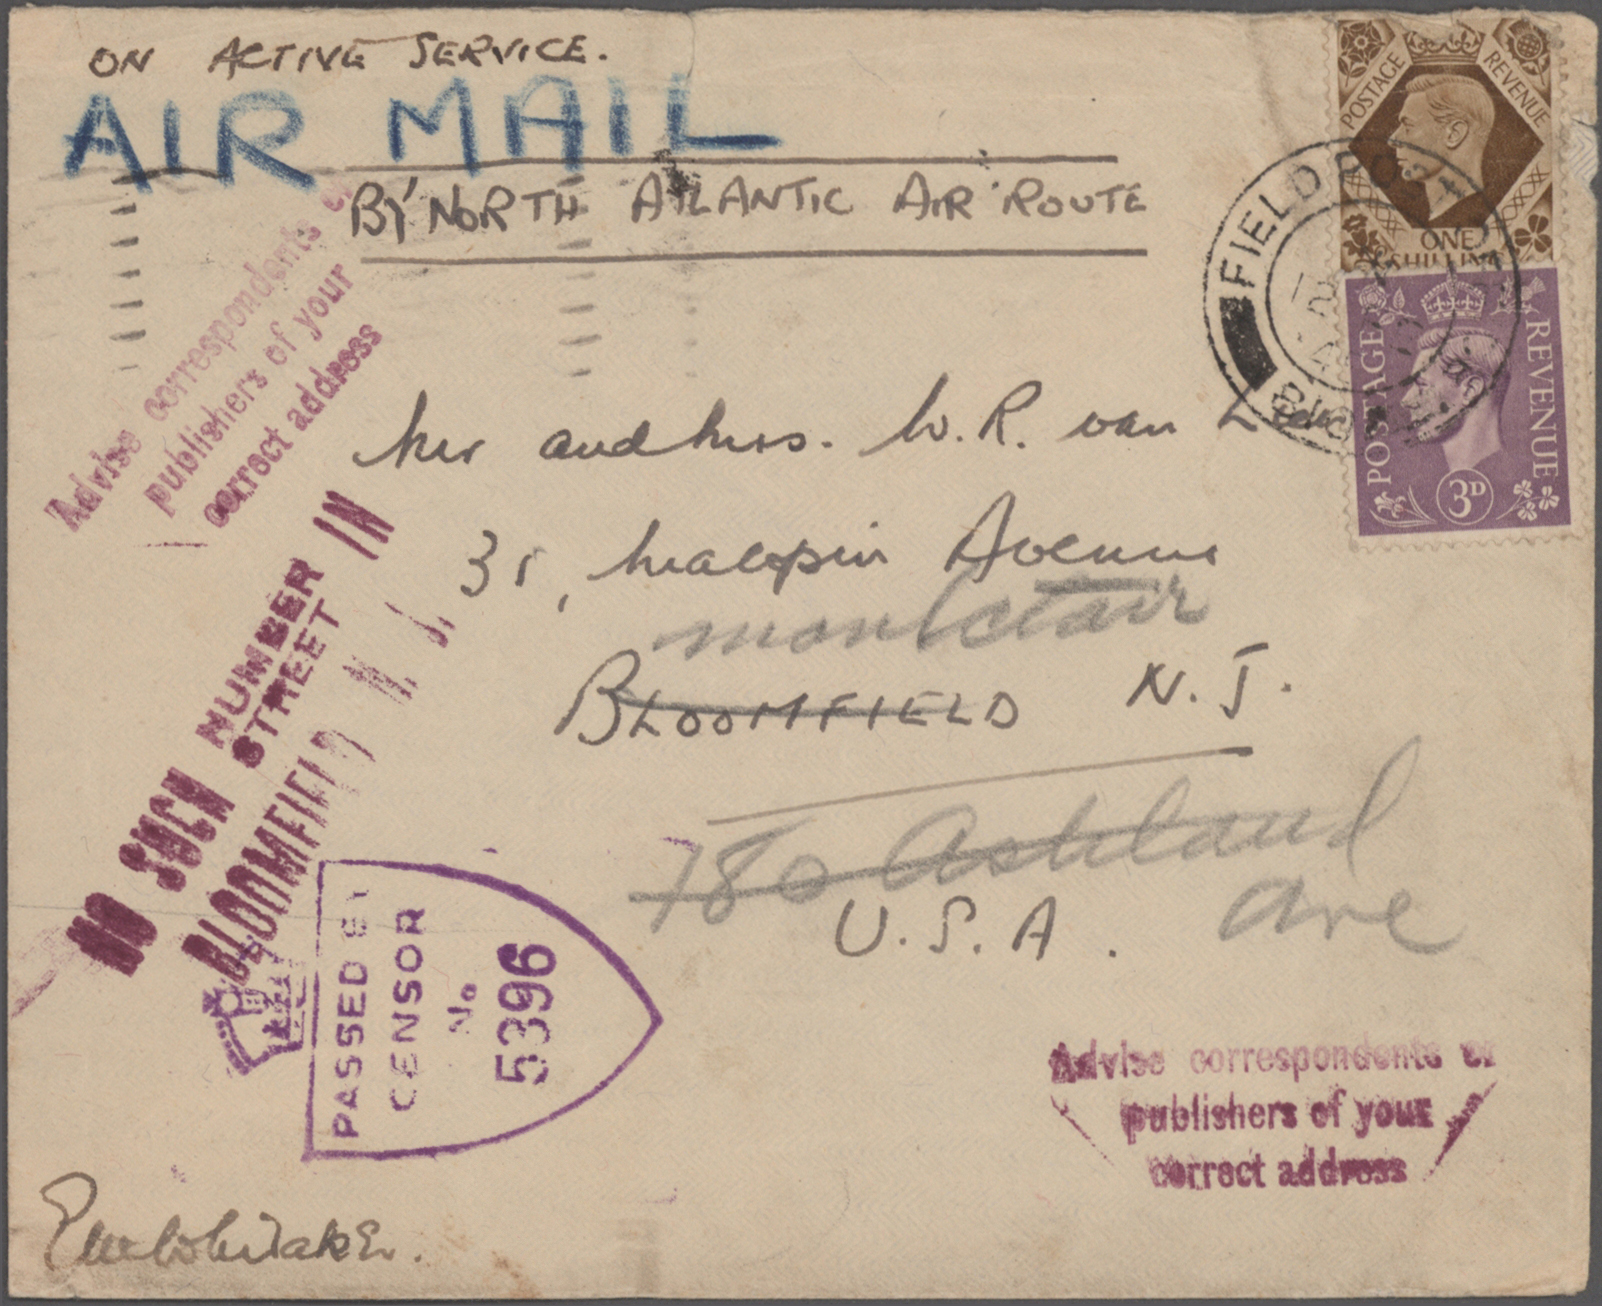 ON ACTIVE SERVICE.
AIR MAIL
BY NORTH ATLANTIC AIR ROUTE
POSTAGE REVENUE
ONE
SHILLING
FIELD POST
POSTAGE REVENUE
3D
Advise correspondents or
publishers of your
correct address
Mr and Mrs. W. R. van
35, Mcalopin Avenue
montclair
BLOOMFIELD N.J.
780 Ashland
ave
U.S.A.
NO SUCH NUMBER IN
STREET
BLOOMFIELD N. J.
PASSED BY
CENSOR
No
5396
Advise correspondents or
publishers of your
correct address